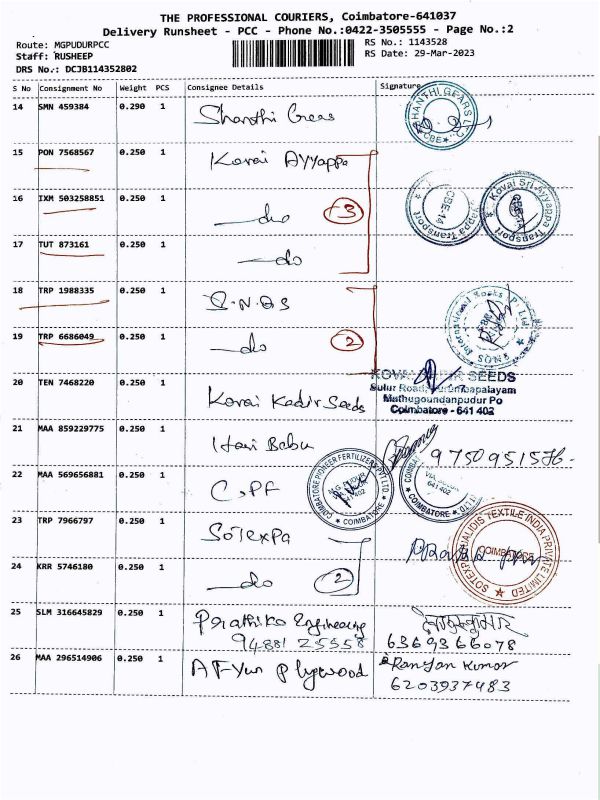 THE PROFESSIONAL COURIERS, Coimbatore-641037
Delivery Runsheet - PCC - Phone No.:0422-3505555 - Page No.:2
Route: MGPUDURPCC RS No.: 1143528
Staff: RUSHEEP RS Date: 29-Mar-2023
DRS No.: DCJB114352802
S No Consignment No Weight PCS Consignee Details Signature
14 SMN 459384 0.290 1 Shanthi Gears
SHANTHI GEARS CBE
15 PON 7568567 0.250 1 Kovai Ayyappa
16 IXM 503258851 0.250 1 do 3
CBE-14 Transport
Kovai Sri Ayyappa Transport CBE-14
17 TUT 873161 0.250 1 do
18 TRP 1988335 0.250 1 S.N.Q.S
SNQS International Socks P. Ltd
19 TRP 6686049 0.250 1 do 2
20 TEN 7468220 0.250 1 Kovai Kadir Seeds
SEEDS
Sulur Road,
Muthugoundanpudur Po
Coimbatore - 641 402
21 MAA 859229775 0.250 1 Hari Babu
22 MAA 569656881 0.250 1 C.P.F
COIMBATORE PIONEER FERTILIZERS PVT LTD. COIMBATORE
641 402 COIMBATORE
23 TRP 7966797 0.250 1 Sotexpa
24 KRR 5746180 0.250 1 do 2
SOTEXPA QUALIDIS TEXTILE INDIA PRIVATE LIMITED COIMBATORE
25 SLM 316645829 0.250 1 Prathiko Engineering
94881 25558 6369366078
26 MAA 296514906 0.250 1 Plywood Ranjan Kumar
6203937483